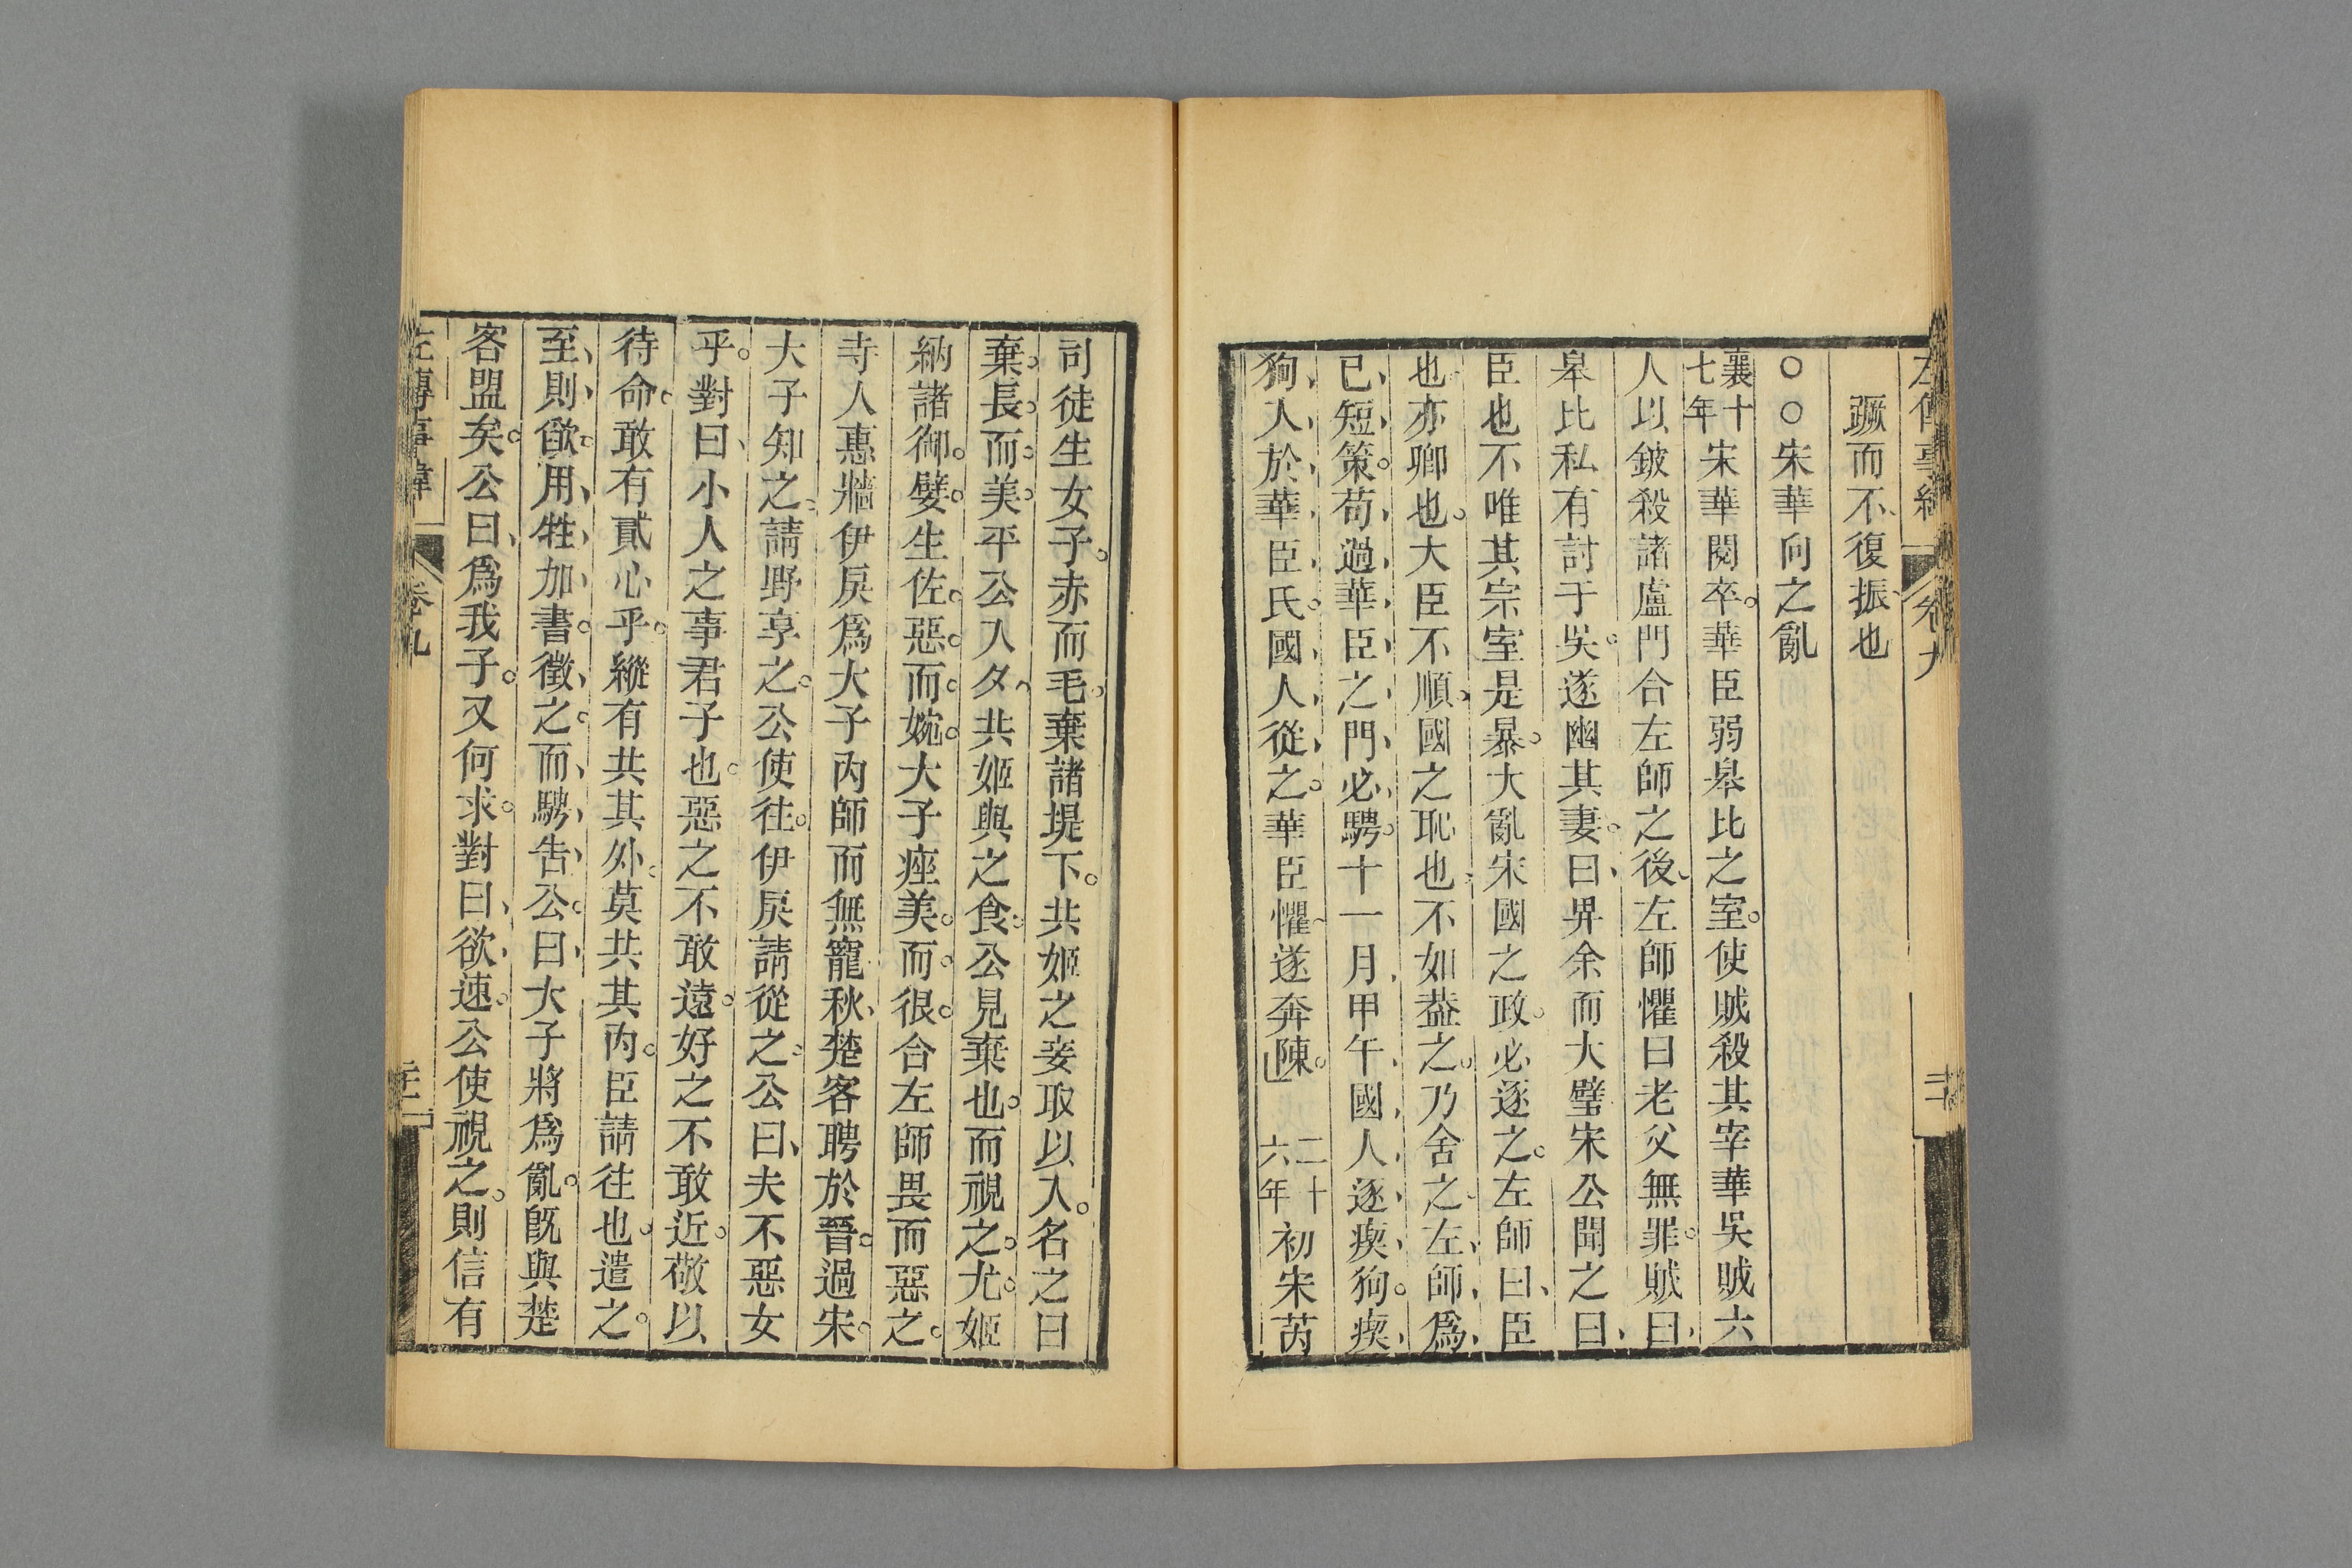 蹶而不復振也
○○宋華向之亂
襄十七年宋華閱卒。華臣弱臯比之室。使賊殺其宰華吳賊六
人以鈹殺諸盧門合左師之後、左師懼曰老父無罪。賊曰、
臯比私有討于吳。遂幽其妻。曰、畀余而大璧宋公聞之曰、
臣也不唯其宗室是暴。大亂宋國之政。必逐之。左師曰、臣
也亦卿也。大臣不順、國之恥也、不如葢之。乃舍之、左師爲
己短策。苟過華臣之門、必騁。十一月、甲午、國人逐瘈狗。瘈
狗入於華臣氏。國人從之。華臣懼、遂奔陳。二十六年初宋芮
司徒生女子。赤而毛。棄諸堤下。共姬之妾取以入。名之曰
棄。長。而。美。平公入夕、共姬與之食。公見棄也。而視之。尤。姬
納諸御。嬖。生佐。惡。而。婉。大子痤美。而。很。合左師畏而惡之。
寺人惠牆伊戾爲大子內師而無寵秋、楚客聘於晉。過宋。
大子知之。請野享之。公使往。伊戾請從之。公曰、夫不惡女
乎。對曰、小人之事君子也。惡之不敢遠。好之不敢近。敬以
待命。敢有貳心乎。縱有共其外。莫共其內。臣請往也。遣之。
至、則、欿、用、牲、加、書。徵、之。而、騁、告、公。曰、大子將爲亂。旣與楚
客盟矣。公曰、爲我子。又何求。對曰、欲速。公使視之。則信有
左傳事緯 卷九